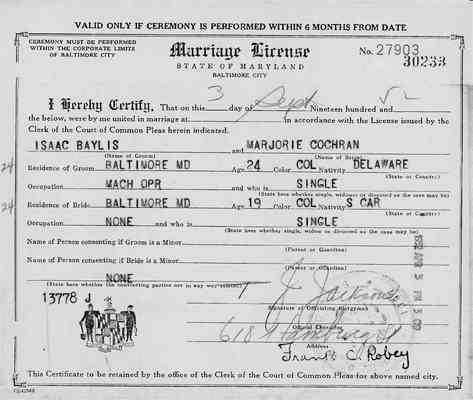 VALID ONLY IF CEREMONY IS PERFORMED WITHIN 6 MONTHS FROM DATE
CEREMONY MUST BE PERFORMED
WITHIN THE CORPORATE LIMITS
OF BALTIMORE CITY
Marriage License
STATE OF MARYLAND
BALTIMORE CITY
No. 27903
30233
I Hereby Certify, That on this 3 day of Sept Nineteen hundred and
the below, were by me united in marriage at in accordance with the License issued by the
Clerk of the Court of Common Pleas herein indicated.
ISAAC BAYLIS and MARJORIE COCHRAN
(Name of Groom) (Name of Bride)
24 Residence of Groom BALTIMORE MD Age 24 Color COL Nativity DELAWARE
(State or Country)
Occupation MACH OPR and who is SINGLE
(State here whether single, widower or divorced as the case may be)
24 Residence of Bride BALTIMORE MD Age 19 Color COL Nativity S CAR
(State or Country)
Occupation NONE and who is SINGLE
(State here whether single, widow or divorced as the case may be)
Name of Person consenting if Groom is a Minor
(Parent or Guardian)
Name of Person consenting if Bride is a Minor
(Parent or Guardian)
NONE
(State here whether the contracting parties are in any way related)
13778 J
J. Jackson
Signature of Officiating Clergyman
Official Character
618
Address
Frank C. Robey
This Certificate to be retained by the office of the Clerk of the Court of Common Pleas for above named city.